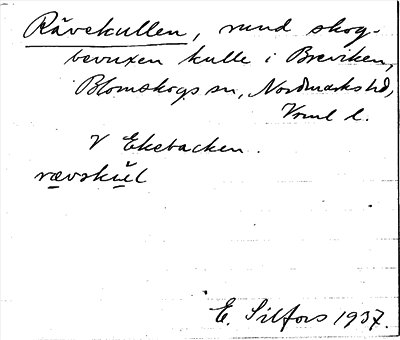 Rävekullen, rund skog-
bevuxen kulle i Breviken,
Blomskogs sn, Nordmarks hd,
Vrml l.
V Ekebacken.
rævskul
E. Silfors 1937.